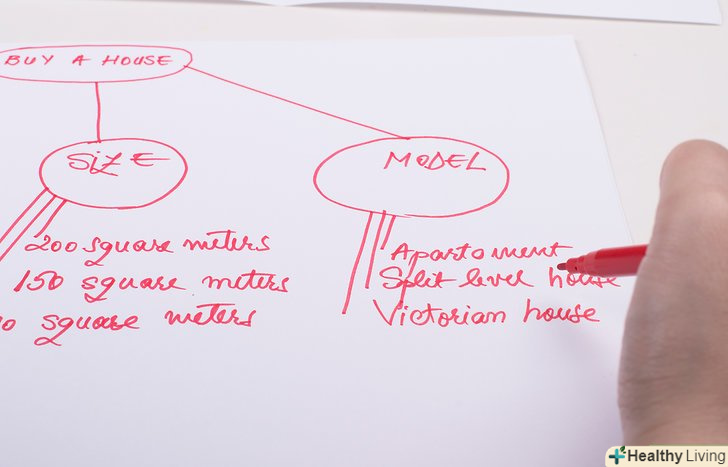 BUY A HOUSE
SIZE
MODEL
200 square meters
150 square meters
square meters
Apartoment
Split level house
Victorian house
+Healthy Living